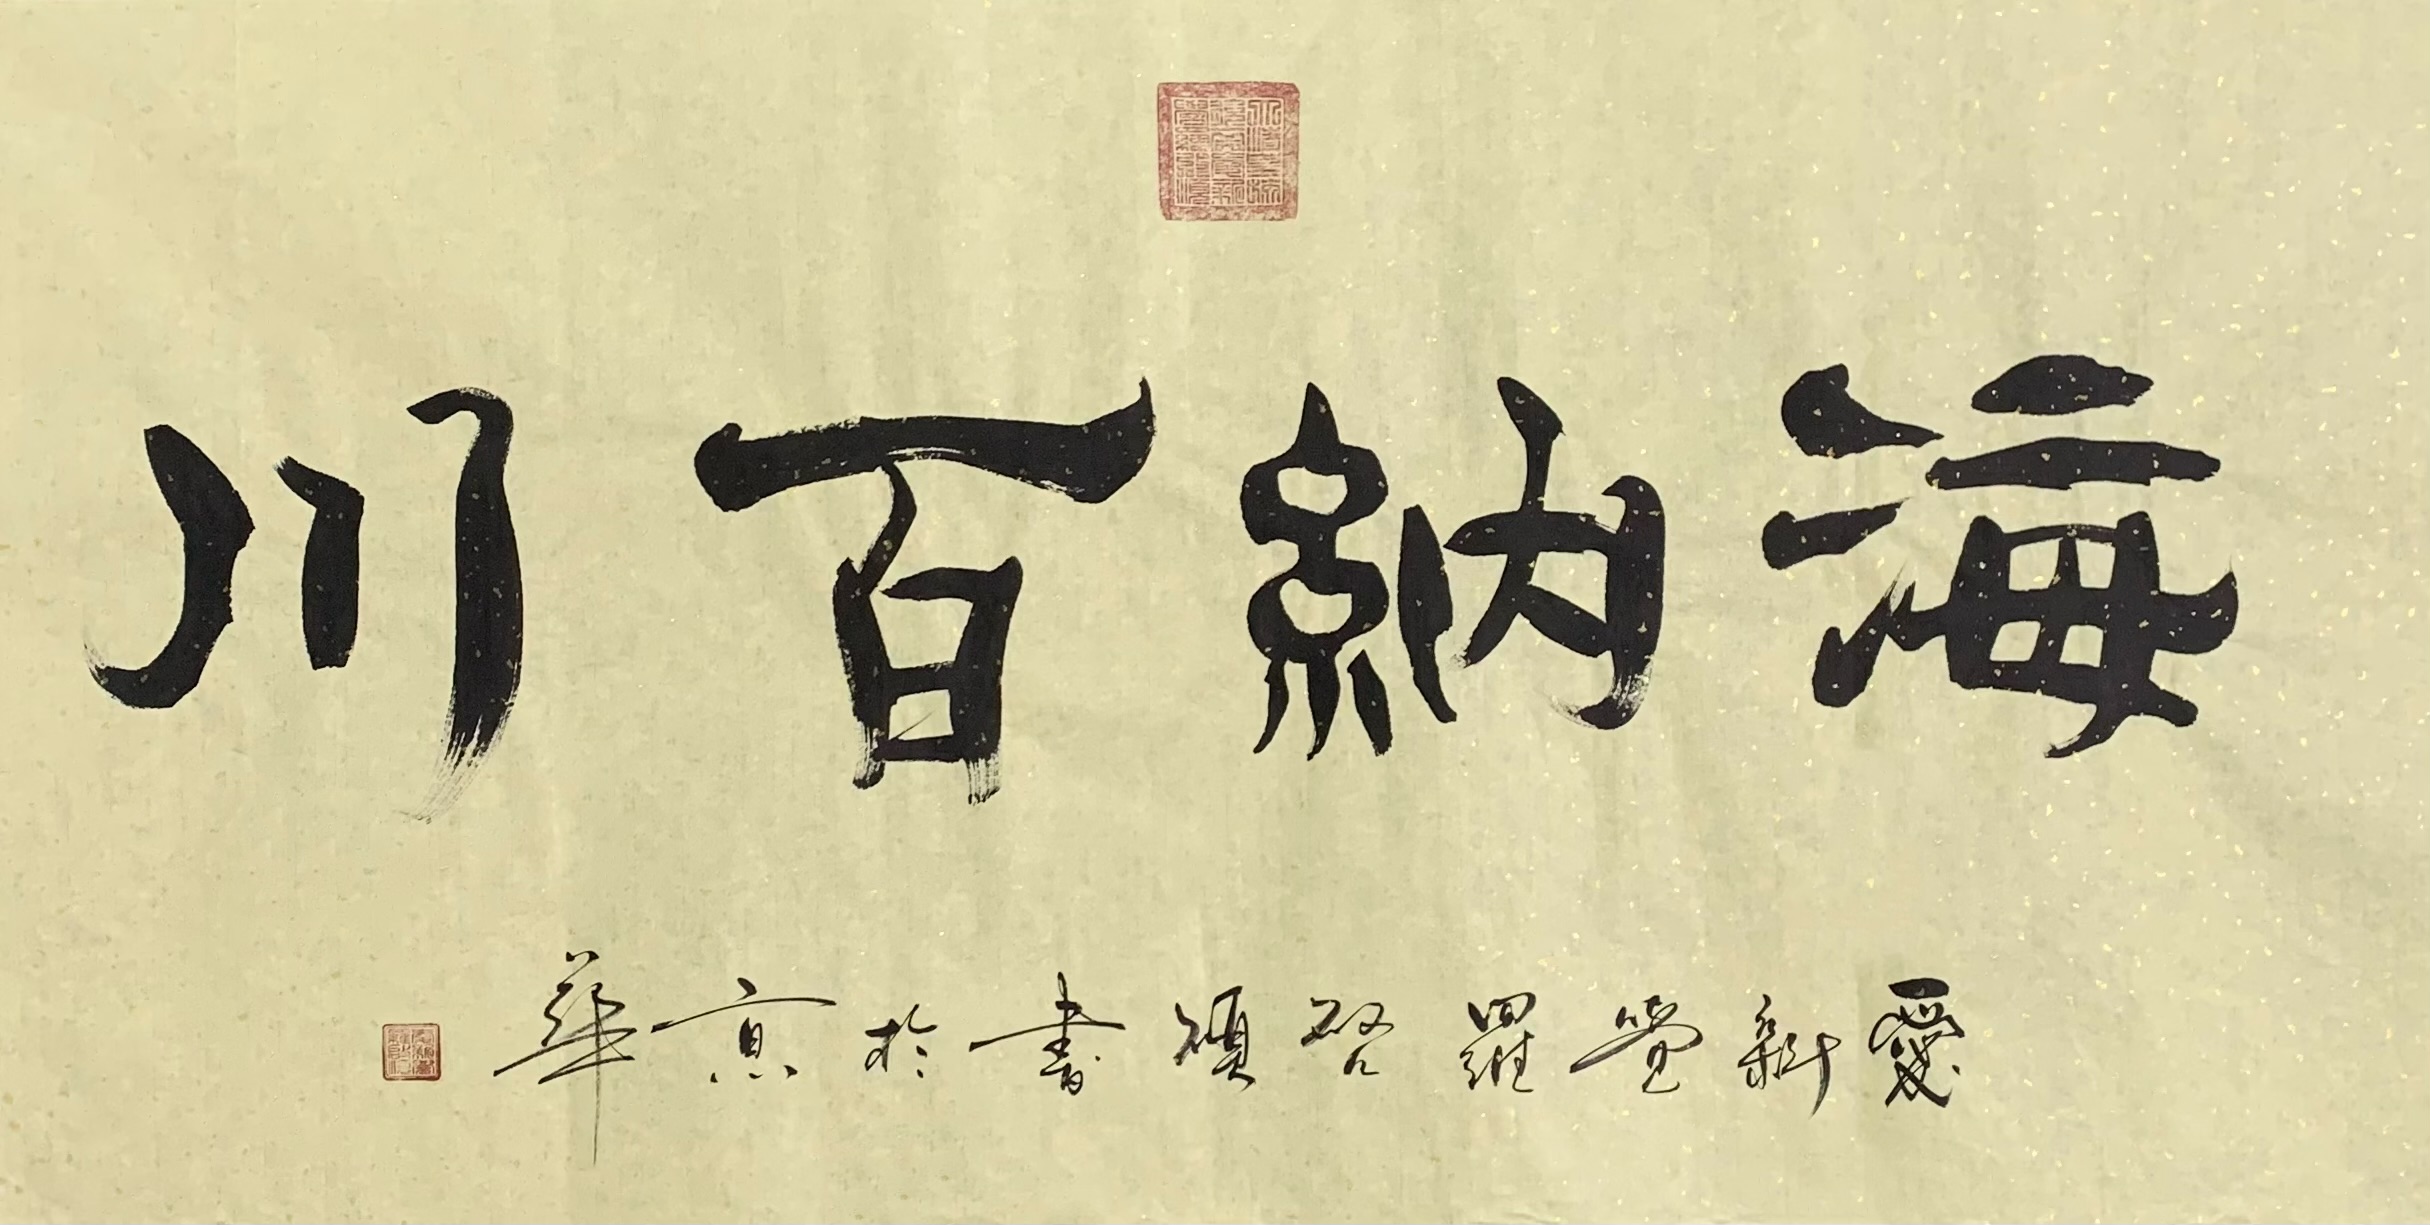 海納百川
愛新覺羅啓碩書於京華